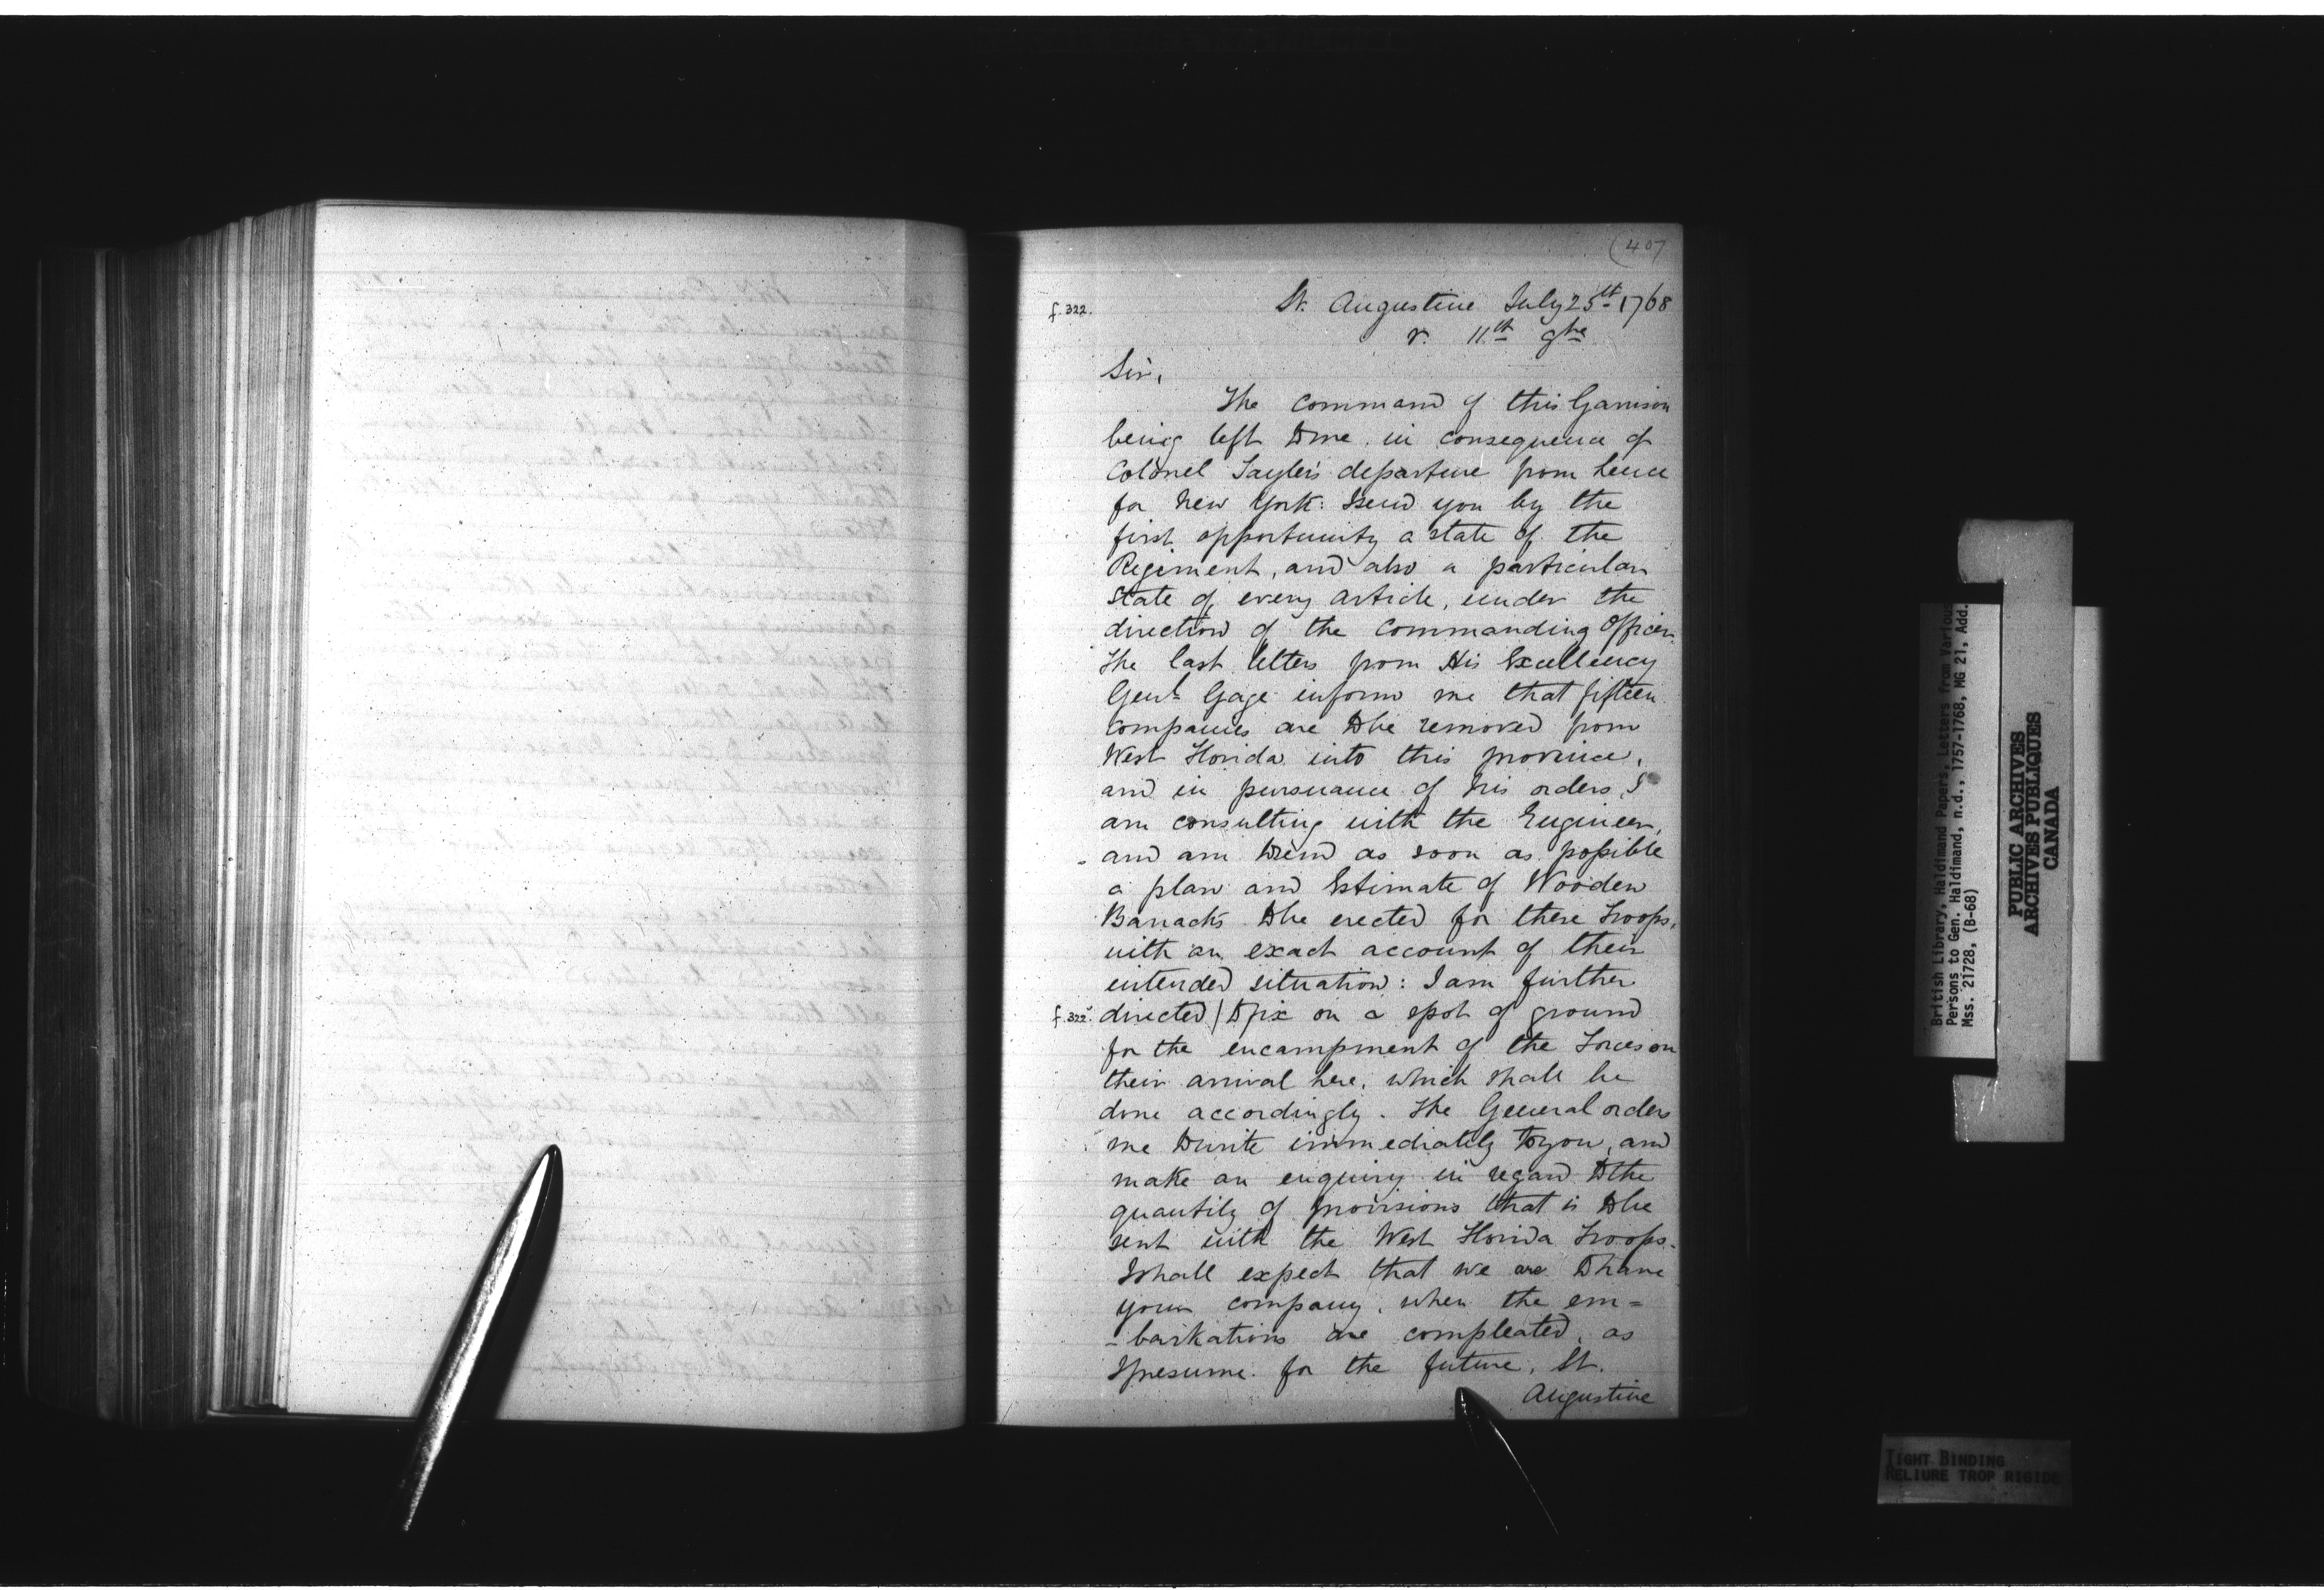 (407
f. 322.
St. Augustine July 25th 1768
r. 11th 9bre
Sir,
The Command of this Garrison
being left to me in consequence of
Colonel Tayler's departure from hence
for New York: I send you by the
first opportunity a state of the
Regiment, and also a particular
State of every Article, under the
direction of the Commanding Officer.
The last letters from His Excellency
Genl. Gage inform me that fifteen
Companies are to be removed from
West Florida into this province,
and in pursuance of his orders, I
am consulting with the Engineer,
and am to send as soon as possible
a plan and Estimate of Wooden
Barracks to be erected for these Troops,
with an exact account of their
intended situation: I am further
f. 322v. directed / to fix on a spot of ground
for the encampment of the Forces on
their arrival here, which shall be
done accordingly. The General orders
me to write immediately to you, and
make an enquiry in regard to the
quantity of provisions that is to be
sent with the West Florida Troops.
I shall expect that we are to have
your company, when the em=
-barkations are compleated, as
I presume for the future, St.
Augustine
British Library, Haldimand Papers, Letters from Various
Persons to Gen. Haldimand, n.d., 1757-1768, MG 21, Add.
Mss. 21728, (B-68)
PUBLIC ARCHIVES
ARCHIVES PUBLIQUES
CANADA
TIGHT BINDING
RELIURE TROP RIGIDE